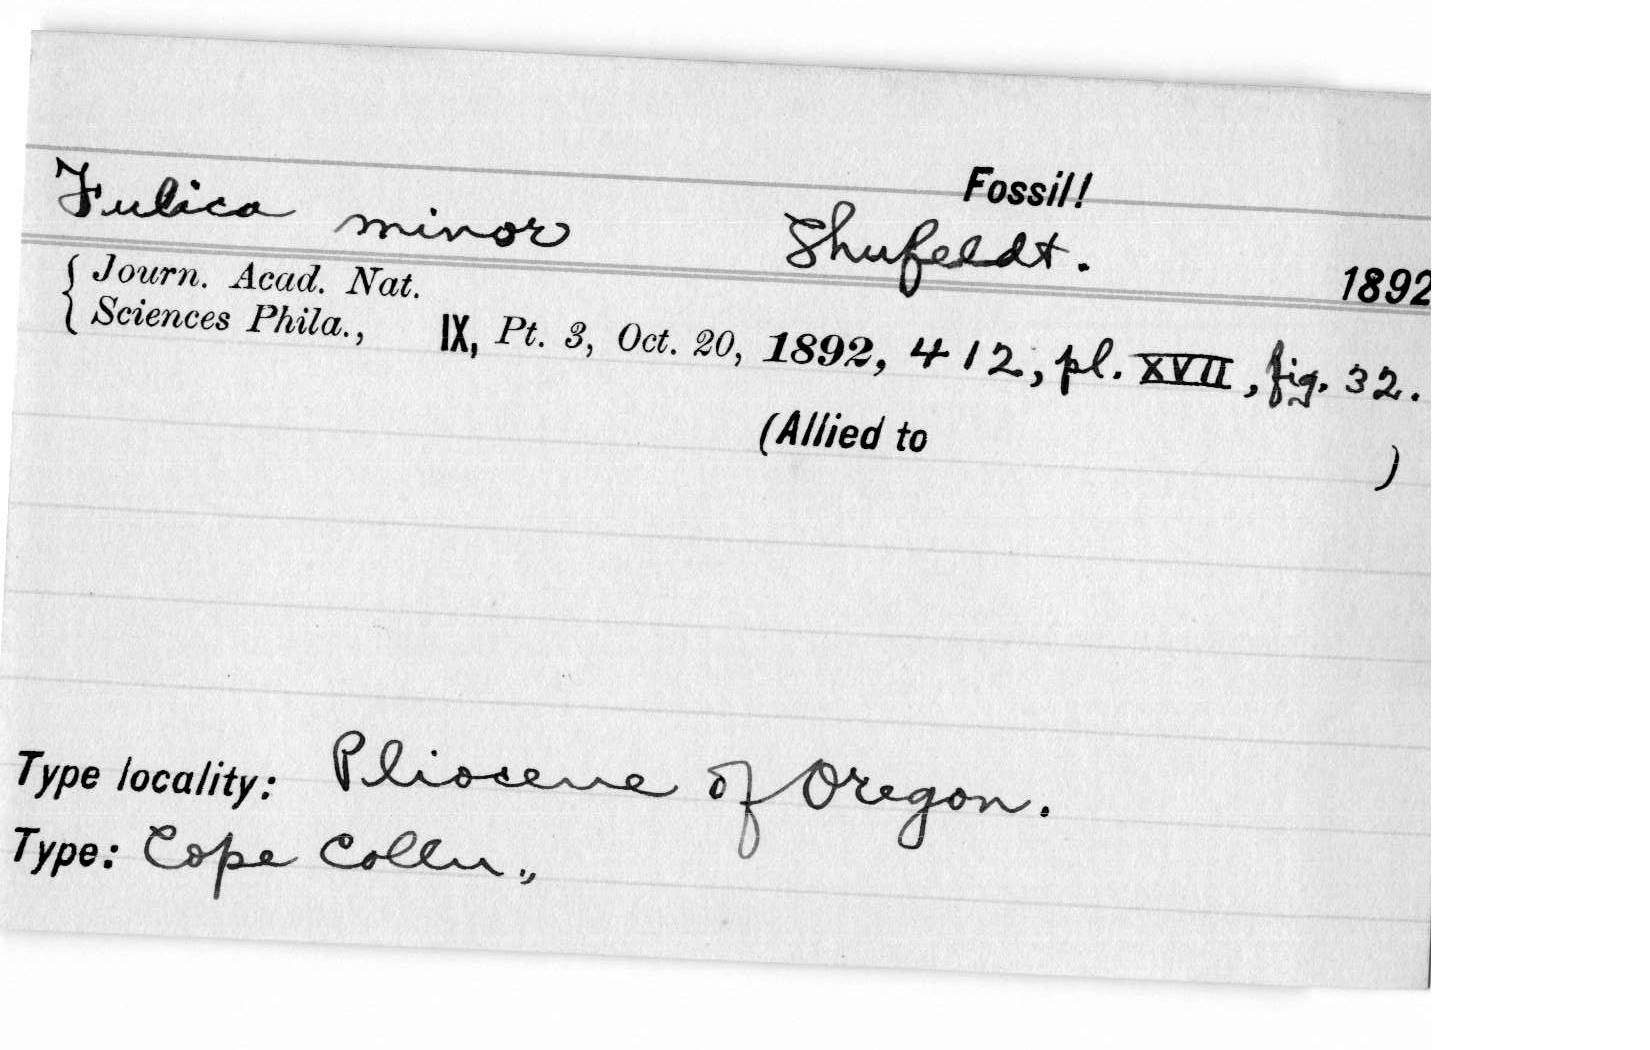 Fossil!
Fulica minor Shufeldt. 1892
Journ. Acad. Nat.
Sciences Phila., IX, Pt. 3, Oct. 20, 1892, 412, pl. XVII, fig. 32.
(Allied to )
Type locality: Pliocene of Oregon.
Type: Cope Colln.,